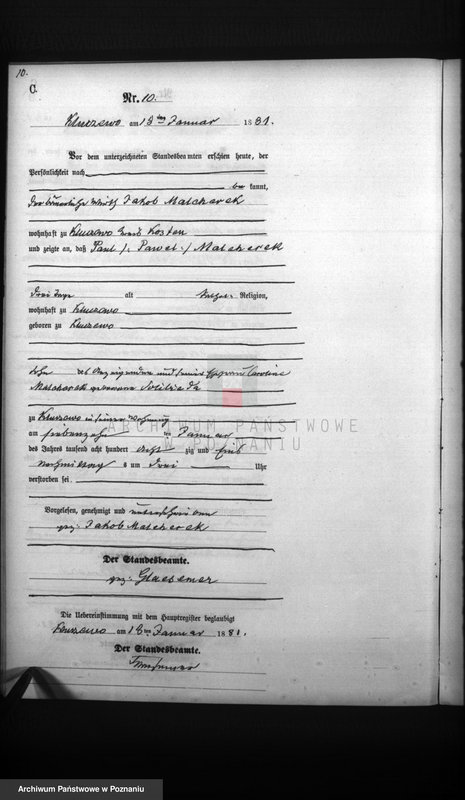 10.
C.
Nr. 10.
Kluczewo am 18ten Januar 1881.
Vor dem unterzeichneten Standesbeamten erschien heute, der
Persönlichkeit nach
be kannt,
der Wirth Jakob Malcherek
wohnhaft zu Kluczewo Kreis Kosten
und zeigte an, daß Paul /: Pawel :/ Malcherek
drei Tage alt Religion,
wohnhaft zu Kluczewo
geboren zu Kluczewo
Sohn des Anzeigenden und seiner Ehefrau Caroline
Malcherek geborene
zu Kluczewo in seiner Wohnung
am siebenzehn ten Januar
des Jahres tausend acht hundert acht zig und Eins
nachmittag s um drei Uhr
verstorben sei.
Vorgelesen, genehmigt und unterschrieben
gez. Jakob Malcherek
Der Standesbeamte.
gez. Glaesemer
Die Uebereinstimmung mit dem Hauptregister beglaubigt
Kluczewo am 18ten Januar 1881.
Der Standesbeamte.
ARCHIWUM PAŃSTWOWE
W POZNANIU
Archiwum Państwowe w Poznaniu